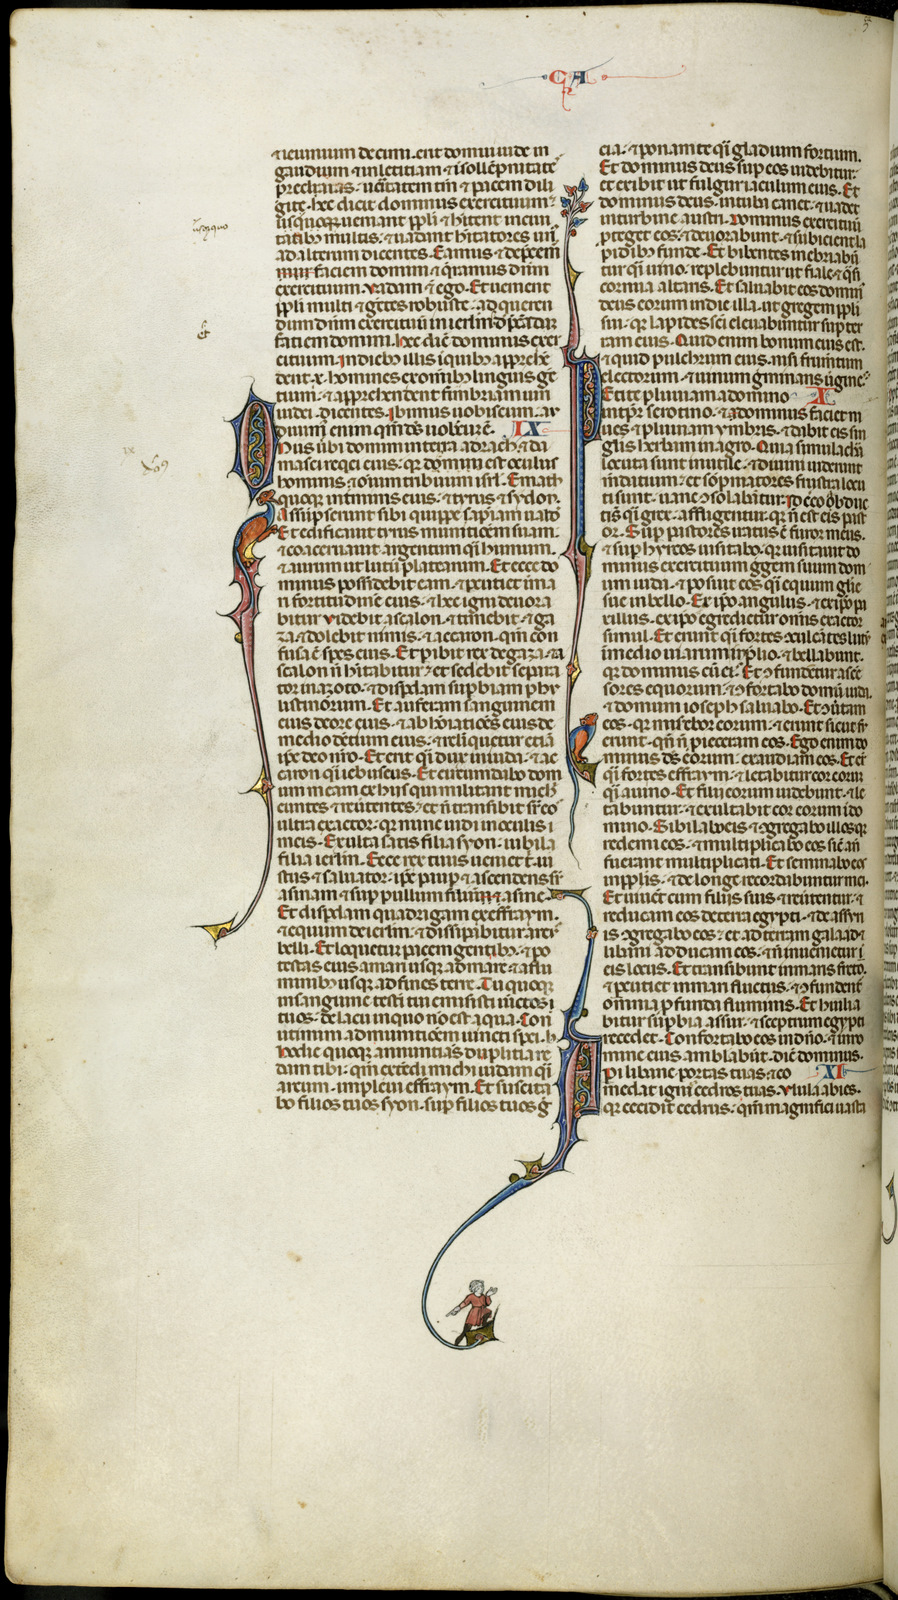 CA
⁊ ieiunium decimi. erit domui iuda in
gaudium ⁊ in letitiam ⁊ ĩ sollẽpnitates
preclaras. ueritatem tm̃ ⁊ pacem dili
gite. hec dicit dominus exercituum.
usquequo ueniant ppl̃i ⁊ hĩtent in ciui
tatibꝫ multis. ⁊ uadant hĩtatores uni᷒
ad alterum dicentes. Eamus ⁊ depcem᷒
faciem domini ⁊ q̃ramus dñm
exercituum. Vadam ⁊ ego. Et uenient
ppl̃i multi ⁊ gẽtes robuste. ad queren
dum dñm exercituũ in ierl̃m ⁊ dp̃cãdã
faciem domini. hec diẽ dominus exer
cituum. In diebꝫ illis ĩ quibꝫ appr̃hẽ
dent .x. homines ex omĩbꝫ linguis gẽ
tium. ⁊ apprehendent fimbriam uiri
iudei. dicentes. Ibimus uobiscum. au
diuim᷒ enim qm̃ dš uobiscũ ẽ. IX
Onus ũbi domini in terra adrach ⁊ da
masci reqĩei eius. qꝛ domini est oculus
hominis ⁊ omnium tribuum isrl̃. Emath
quoque in tminis eius. ⁊ tyrus ⁊ sydon.
Assũpserunt sibi quippe sapĩam ualdẽ
Et edificauit tyrus munitioem suam.
⁊ coaceruauit argentum qĩ humum.
⁊ aurum ut lutũ platearum. Et ecce do
minus possidebit eam. ⁊ pcutiet in ma
ri fortitudinẽ eius. ⁊ hec igni deuora
bitur. Videbit ascalon. ⁊ timebit. ⁊ ga
za. ⁊ dolebit nimis. ⁊ accaron. qm̃ con
fusa ẽ spes eius. Et pibit rex de gaza. ⁊ a
scalon ñ hĩtabitur. ⁊ sedebit separa
tor in azoto. ⁊ disp̃dam sup̃biam phy
listinorum. Et auferam sanguinem
eius de ore eius. ⁊ abhoĩatioẽs eius de
medio dentium eius. ⁊ relĩquetur etiã
ip̃e deo nr̃o. Et erit qĩ dux in iuda. ⁊ ac
caron qĩ iebuseus. Et circumdabo dom
um meam ex hiis qui militant michi
euntes ⁊ reũtentes. ⁊ ñ transibit sr̃ eos
ultra exactor. qꝛ nunc uidi in oculis
meis. Exulta satis filia syon. iubila
filia ierl̃m. Ecce rex tuus ueniet t̃. iu
stus ⁊ saluator. ip̃e paup ⁊ ascendens sr̃
asinam ⁊ sup pullum filium asine.
Et disp̃dam quadrigam ex effraym.
⁊ equum de ierl̃m. ⁊ dissipabitur arc᷒
belli. Et loquetur pacem gentibꝫ. ⁊ po
testas eius a mari usqꝫ ad mare. ⁊ a flu
minibꝫ usqꝫ ad fines terre. Tu quoqꝫ
in sanguine testĩ tui emisisti uĩctos
tuos. de lacu in quo nõ est aqua. Con
uertimini ad munitioẽm uincti spei.
hodie quoqꝫ annuntians duplitia re
dam tibi. qm̃ extendi michi iudam qĩ
arcum. impleui effraym. Et suscita
bo filios tuos syon. sup filios tuos g̃
cia. ⁊ ponam te qĩ gladium fortium.
Et dominus deus sup eos uidebitur.
et exibit ut fulgur iaculum eius. Et
dominus deus in tuba canet. ⁊ uadet
in turbine austri. Dominus exercituũ
pteget eos. ⁊ deuorabunt. ⁊ subicient la
pidibꝫ funde. Et bibentes inebriabũ
tur qĩ uino. replebuntur ut fiale ⁊ qĩ
cornua altaris. Et saluabit eos domin᷒
deus eorum in die illa. ut gregem ppl̃i
sui. qꝛ lapides sc̃i eleuabuntur sup ter
ram eius. Quid enim bonum eius est.
⁊ quid pulchrum eius. nisi frumentum
electorum. ⁊ uinum gminans ũgines.
Petite pluuiam a domino X
in tp̃r serotino. ⁊ dominus faciet ni
ues ⁊ pluuiam ymbris. ⁊ dabit eis sin
glĩs herbam in agro. Quia simulachra
locuta sunt inutile. ⁊ diuini uiderunt
mdatium. ⁊ sõpniatores frustra locu
ti sunt. uane ꝯsolabñtur. Idc̃co abduc
ti sũt qĩ grex. affligentur. qꝛ ñ est eis past
or. Sup pastores iratus ẽ furor meus.
⁊ sup hyrcos uisitabo. qꝛ uisitauit do
minus exercituum gregem suum dom
um iuda. ⁊ posuit eos qĩ equum glĩe
sue in bello. Ex ip̃o angulus. ⁊ ex ip̃o pa
xillus. ex ip̃o egredietur om̃is exactor
simul. Et erunt qĩ fortes ꝯculcãtes lutũ
in medio uiarum in p̃lio. ⁊ bellabunt.
qꝛ dominus cũ eis. Et ꝯfundentur ascẽ
sores equorum. ⁊ ꝯfortabo domũ iuda.
⁊ domum ioseph saluabo. Et ꝯũtam
eos. qꝛ miserebor eorum. ⁊ erunt sicut fu
erunt. qñ ñ pieceram eos. Ego enim do
minus dš eorum. exaudiam eos. Et er̃t
qĩ fortes effraym. ⁊ letabitur cor eorum
qĩ a uino. Et filii eorum uidebunt. ⁊ le
tabuntur. ⁊ exultabit cor eorum ĩ do
mino. Sibilabo eis ⁊ ꝯgregabo illos. qꝛ
redemi eos. ⁊ multiplicabo eos sic̃ añ
fuerant multiplicati. Et seminabo eos
in ppl̃is. ⁊ de longe recordabuntur mei.
Et uiuẽt cum filiis suis ⁊ reũtentur. ⁊
reducam eos de terra egypti. ⁊ de assyri
is ꝯgregabo eos. ⁊ ad terram galaad ⁊
libani adducam eos. ⁊ ñ inuenietur ĩ
eis locus. Et transibunt in maris freto.
⁊ pcutiet in mari fluctus. ⁊ ꝯfundent᷒
omnia pfunda fluminis. Et humilia
bitur sup̃bia assur. ⁊ sceptrum egypti
recedet. Confortabo eos in dño. ⁊ in no
mine eius amblabũt. diẽ dominus.
Aperi libane portas tuas. ⁊ co XI
medat ignis cedros tuas. Vlula abies.
qꝛ cecidit cedrus. qm̃ magnifici uasta
usq̃quo
Et
ix